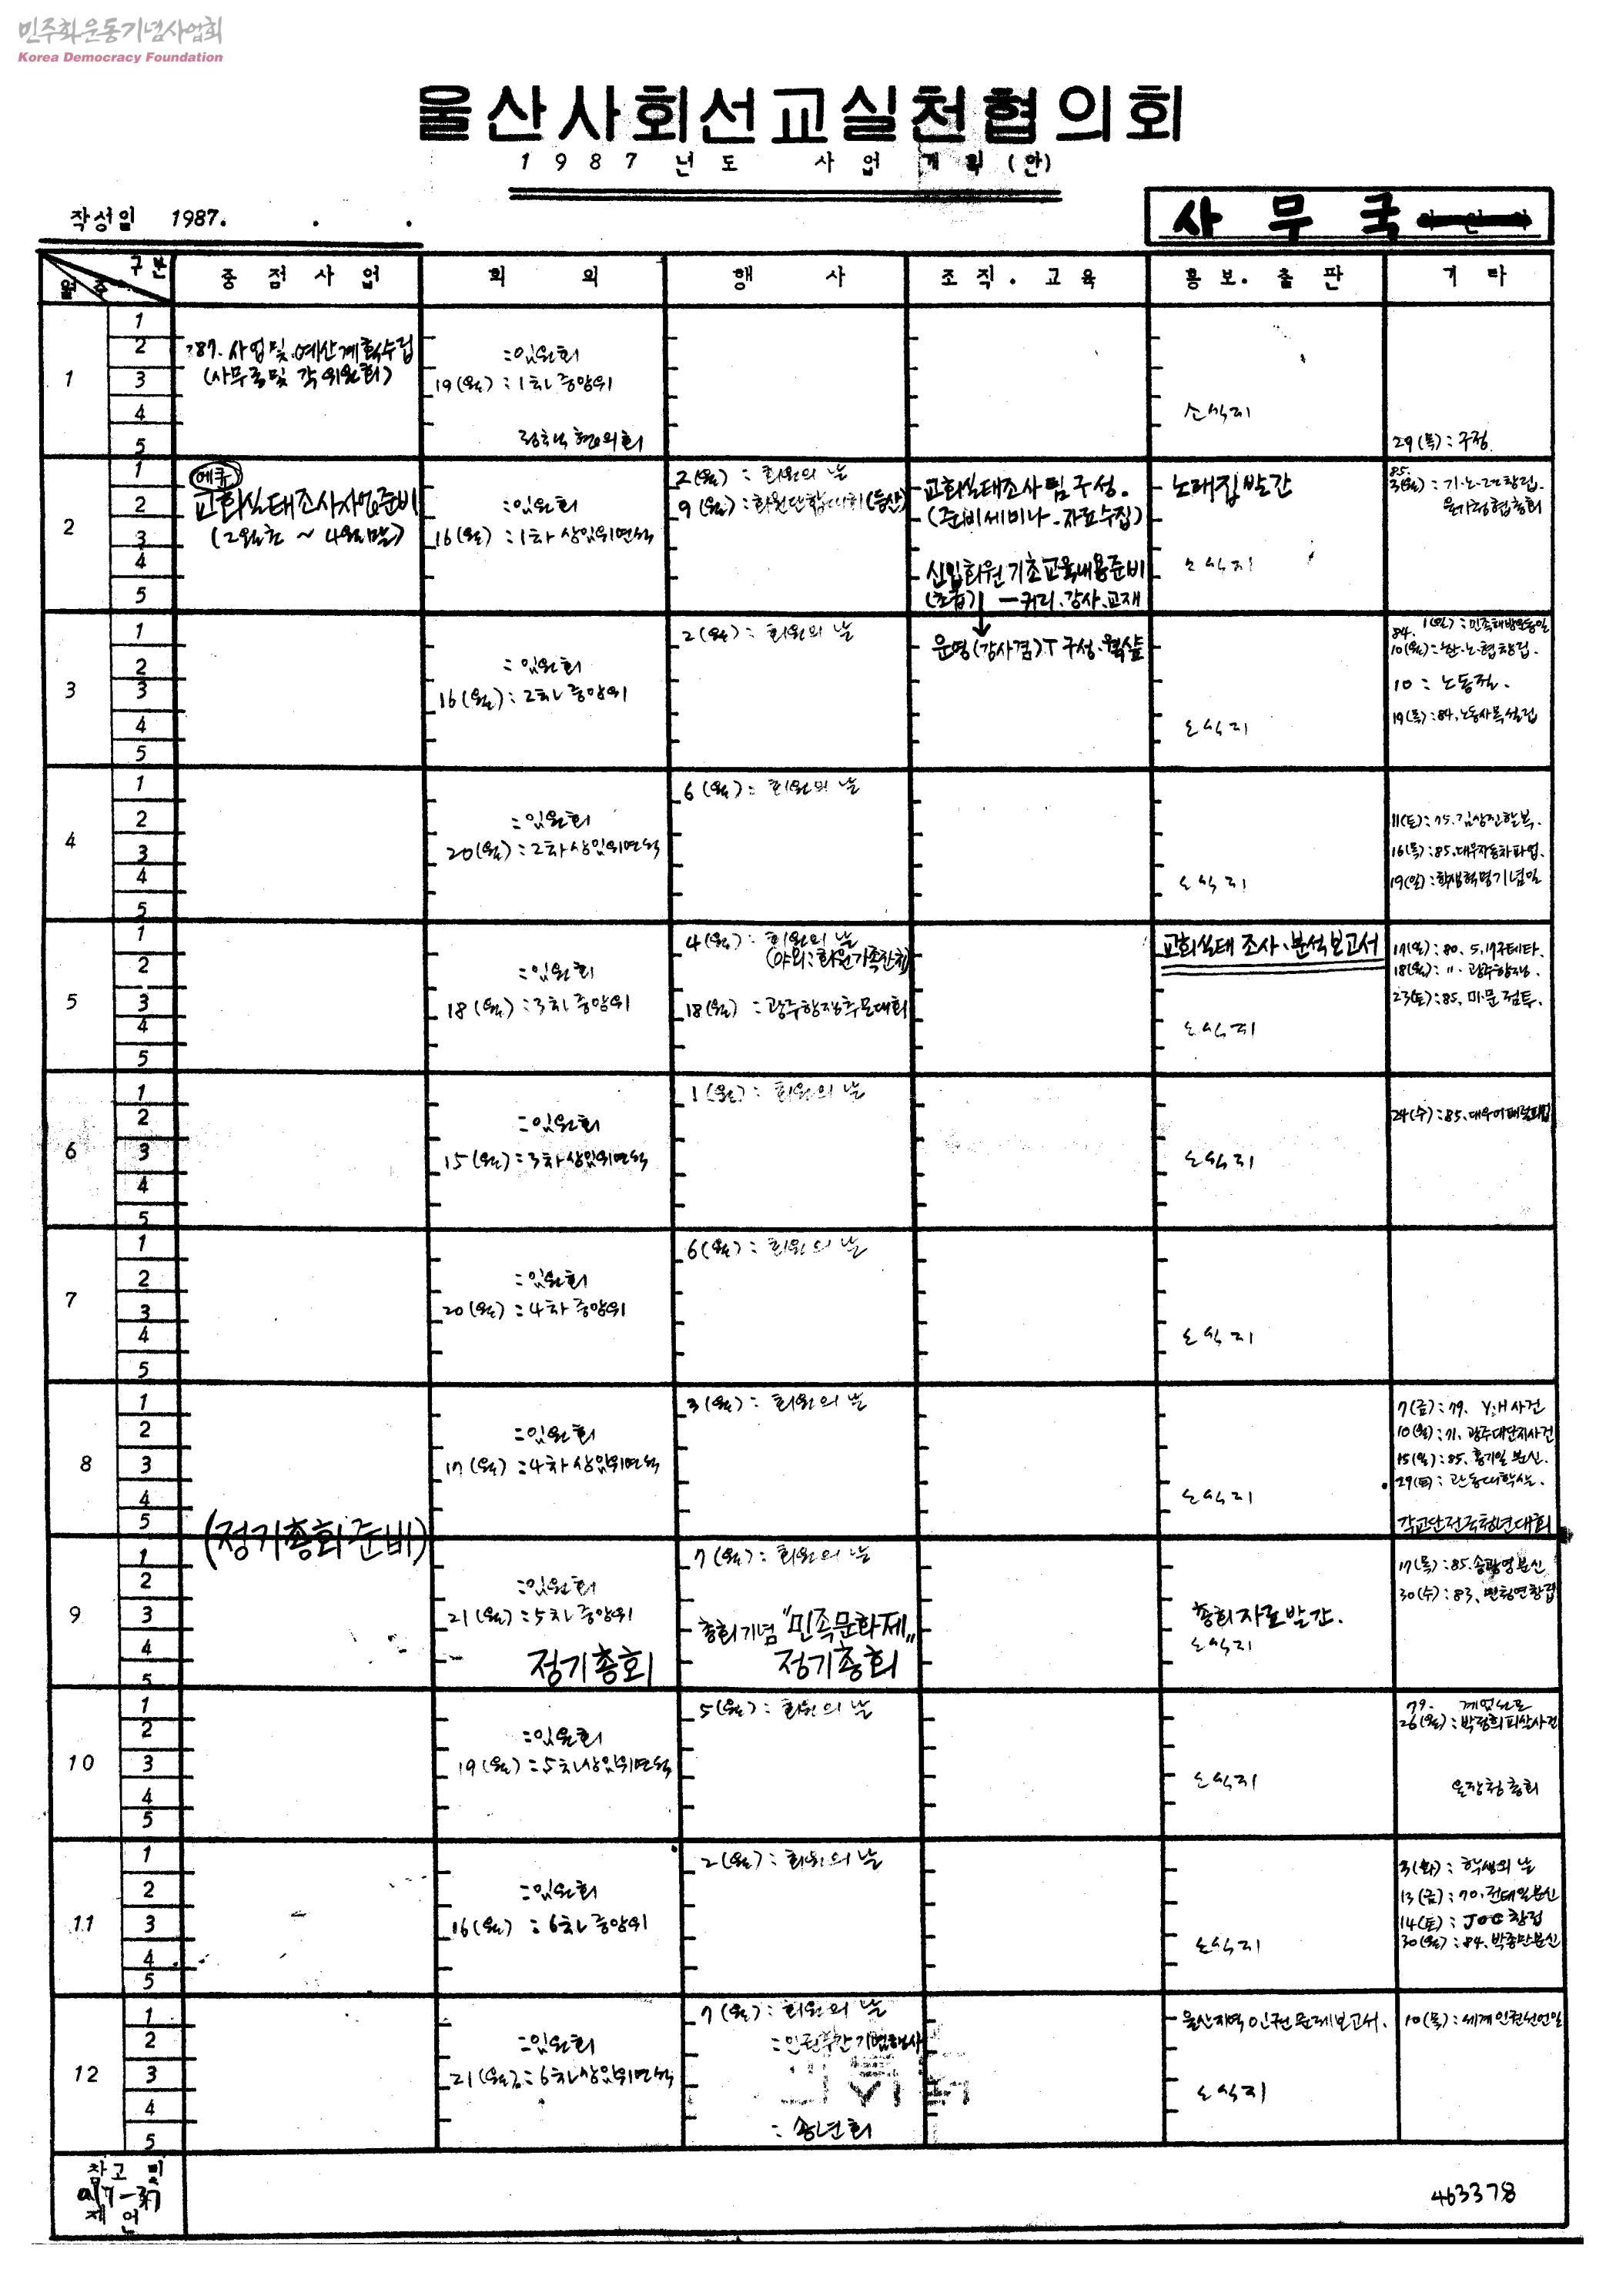 민주화운동기념사업회
Korea Democracy Foundation
울산사회선교실천협의회
1987년도 사업계획(안)
작성일 1987. . .
사무국
구분
월 주
중점사업
회의
행사
조직.교육
홍보.출판
기타
1
1
2
3
4
5
87. 사업및 예산계획수립
(사무국및 각 위원회)
:임원회
19(월) : 1차 중앙위
정책협의회
소식지
29(목) : 구정
2
1
2
3
4
5
교회실태조사사업준비
(2월초 ~ 4월말)
:임원회
16(월) : 1차 상임위연석
2(월) : 회원의 날
9(월) : 회원단합대회(등산)
교회실태조사 팀 구성.
(준비세미나.자료수집)
신입회원 기초교육내용준비
(초급) — 커리.강사.교재
노래집 발간
소식지
85.
3
1
2
3
4
5
:임원회
16(월) : 2차 중앙위
2(월) : 회원의 날
운영(강사겸)T 구성.웍샾
소식지
84.
10 : 노동절.
4
1
2
3
4
5
:임원회
20(월) : 2차 상임위연석
6(월) : 회원의 날
소식지
11(토) : 75. 김상진할복.
16(목) : 85. 대우자동차파업.
19(일) : 학생혁명기념일
5
1
2
3
4
5
:임원회
18(월) : 3차 중앙위
4(월) : 회원의 날
(야외:회원가족잔치)
18(월) : 광주항쟁추모대회
교회실태 조사.분석보고서
소식지
17(일) : 80. 5.17쿠데타.
18(월) : 〃 광주항쟁.
23(토) : 85. 미.문.점투.
6
1
2
3
4
5
:임원회
15(월) : 3차 상임위연석
1(월) : 회원의 날
소식지
24(수) : 85. 대우어패럴파업
7
1
2
3
4
5
:임원회
20(월) : 4차 중앙위
6(월) : 회원의 날
소식지
8
1
2
3
4
5
(정기총회준비)
:임원회
17(월) : 4차 상임위연석
3(월) : 회원의 날
소식지
7(금) : 79. Y.H 사건
10(월) : 71. 광주대단지사건
15(일) : 85. 홍기일 분신.
29(토) : 관동대학살.
각교단전국청년대회
9
1
2
3
4
5
:임원회
21(월) : 5차 중앙위
정기총회
7(월) : 회원의 날
총회기념 "민족문화제"
정기총회
총회자료발간.
소식지
17(목) : 85. 송광영분신
30(수) : 83. 민청련창립
10
1
2
3
4
5
:임원회
19(월) : 5차 상임위연석
5(월) : 회원의 날
소식지
79. 계엄선포
26(월) : 박정희피살사건
11
1
2
3
4
5
:임원회
16(월) : 6차 중앙위
2(월) : 회원의 날
소식지
3(화) : 학생의 날
13(금) : 70. 전태일분신
14(토) : JOC 창립
30(월) : 84. 박종만분신
12
1
2
3
4
5
:임원회
21(월) : 6차 상임위연석
7(월) : 회원의 날
:인권주간기념행사
:송년회
울산지역 인권문제보고서.
소식지
10(목) : 세계인권선언일
참고 및
제언
463378